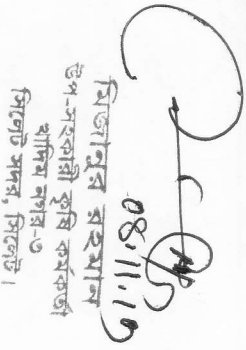 মিজানুর রহমান
উপ-সহকারী কৃষি কর্মকর্তা
খাদিম নগর-৩
সিলেট সদর, সিলেট।